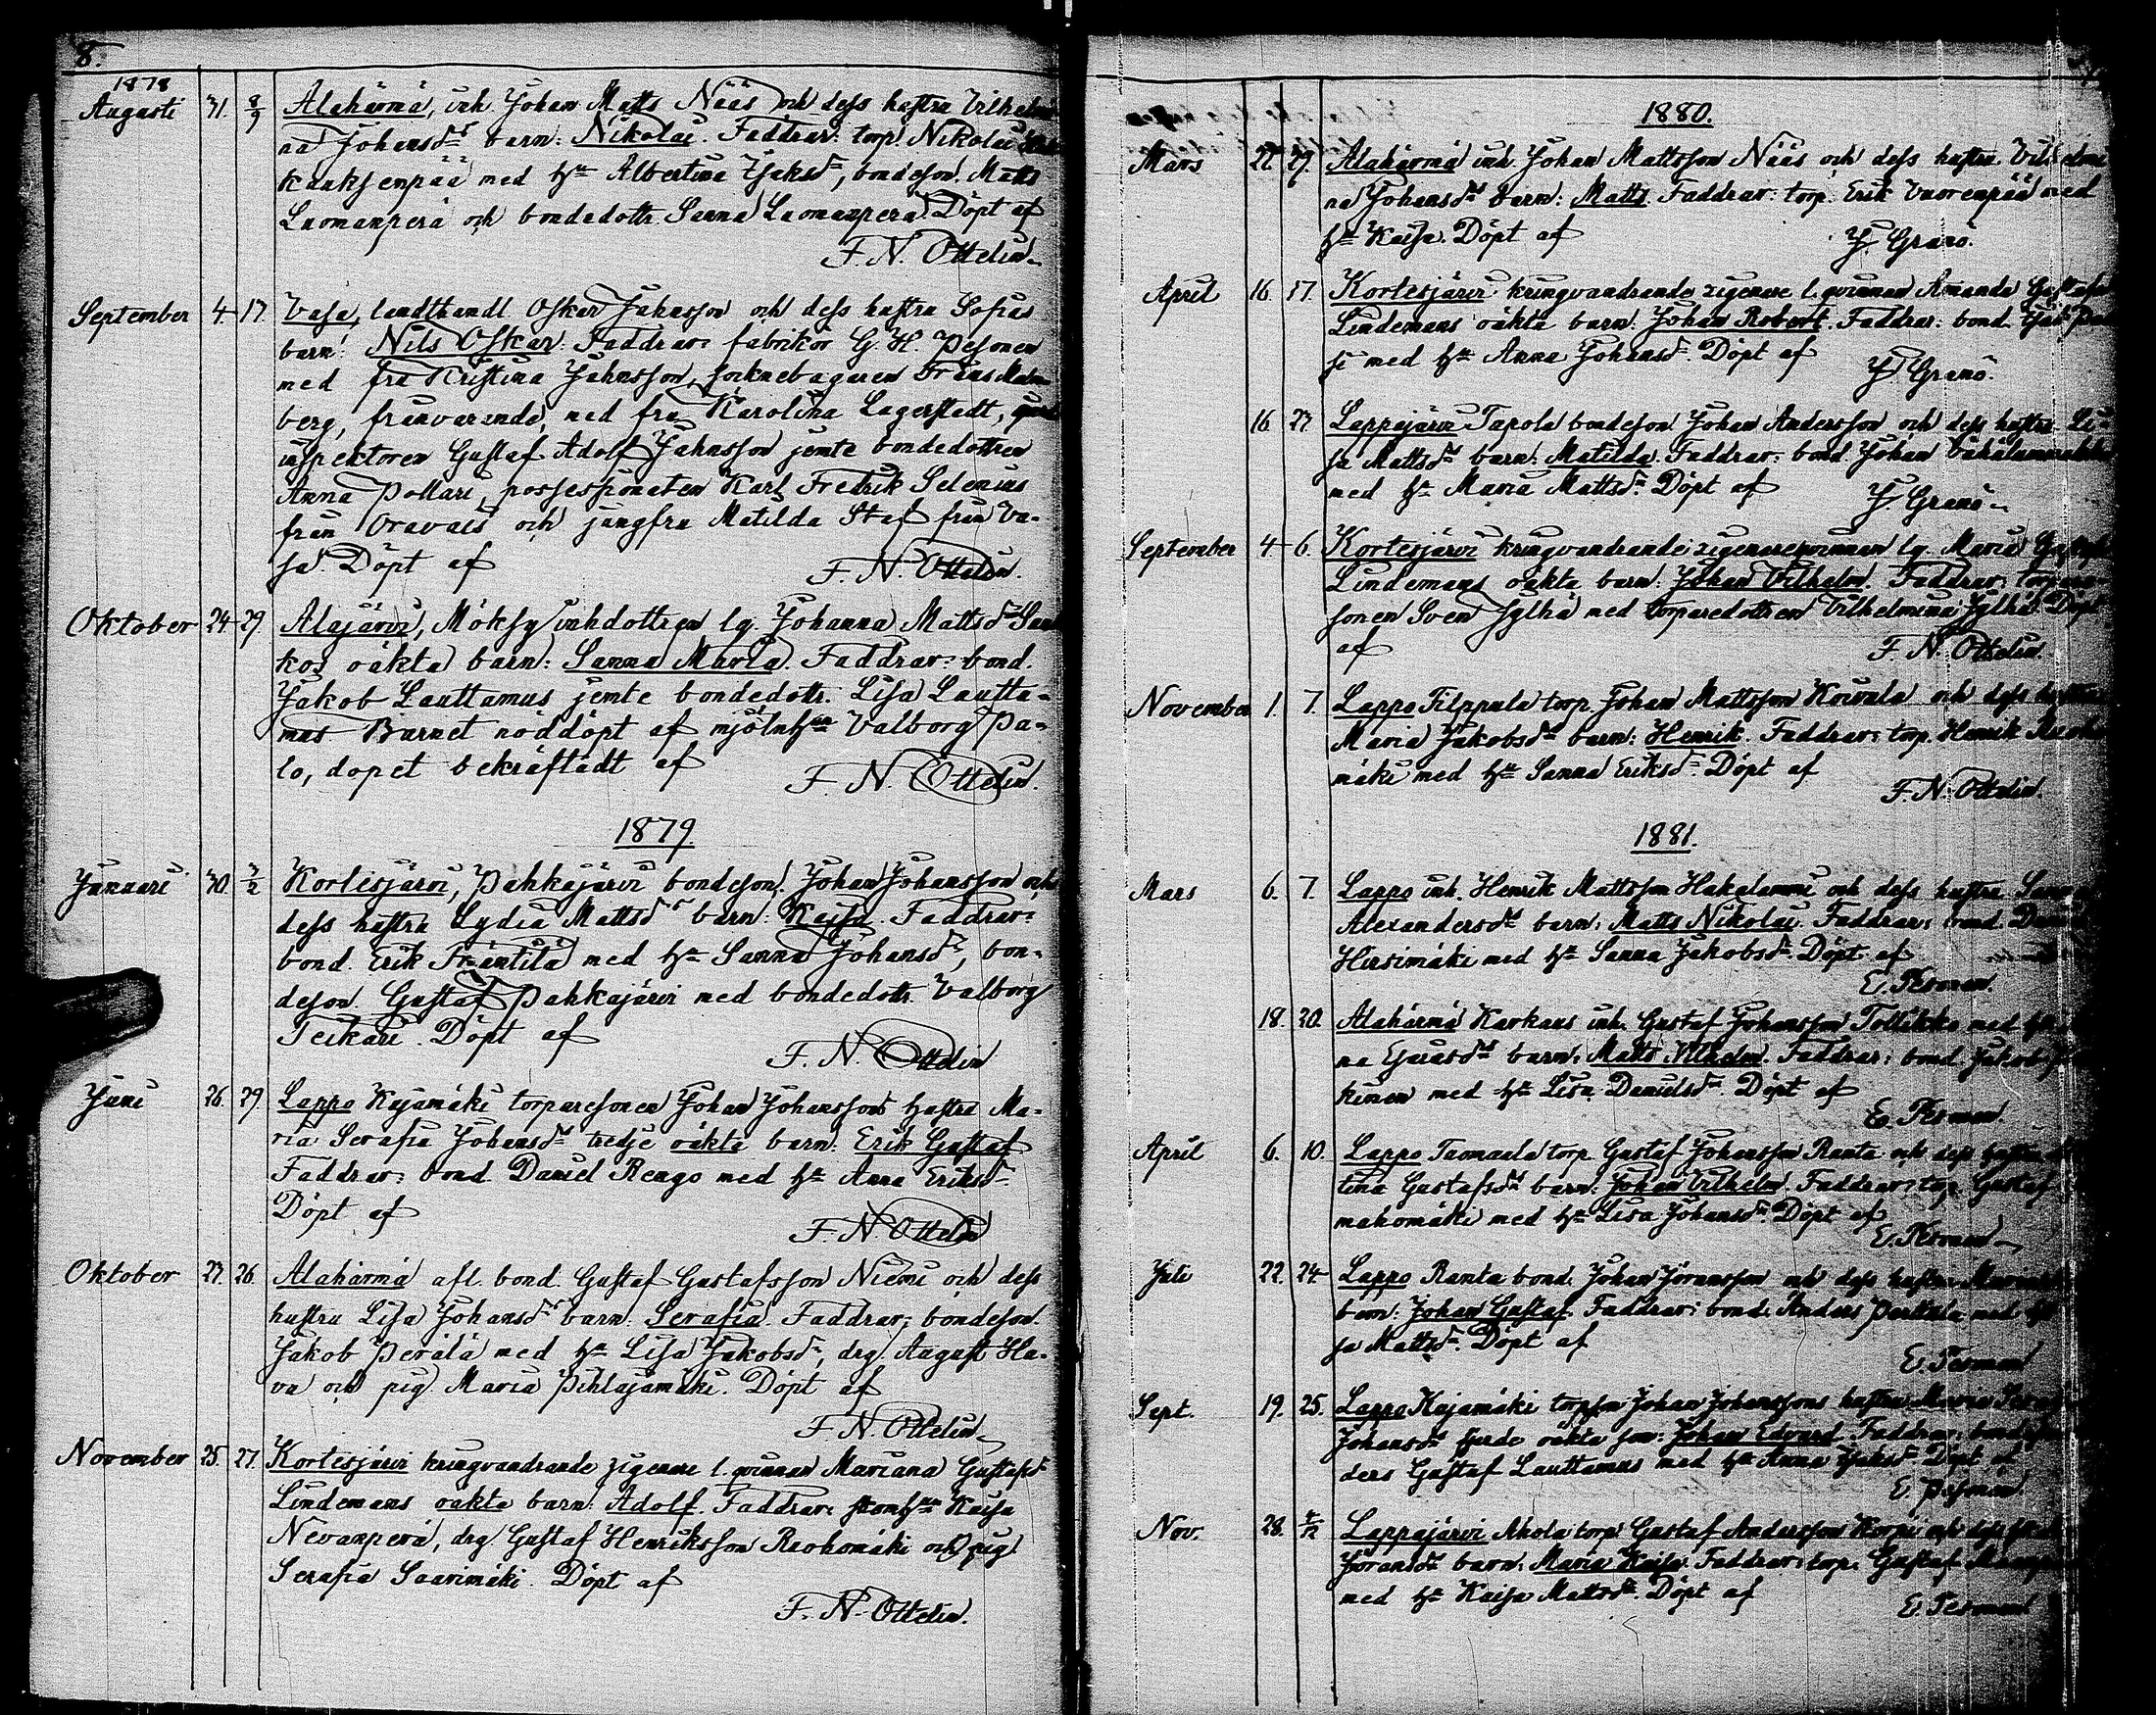 8.
1878
Augusti 31. 8/9 Alahärmä, inh. Johan Matts Nääs och dess hustru Vilhelmi-
na Johansdr barn: Nikolai. Faddrar: torp. Nikolai
Kauksenpää med hu Albertina Isaksdr, bondeson. Matts
Luomanperä och bondedottr. Sanna Luomanperä. Döpt af
F. N. Ottelin.
September 4. 17. Vasa, landthandl. Oskar Jahnsson och dess hustru Sofias
barn: Nils Oskar. Faddrar: fabrikör G. H. Pesonen
med fru Kristina Jahnsson, socknebagaren Frans Malm-
berg, frånvarande, med fru Karolina Lagerstedt,
inspektoren Gustaf Adolf Jahnsson jemte bondedottren
Anna Pollari, possessionaten Karl Fredrik Selenius
från Oravais och jungfru Matilda Staf från Va-
sa. Döpt af
F. N. Ottelin.
Oktober 24. 29. Alajärvi, Möksy inhdottren lg. Johanna Mattsdr
kos oäkta barn: Sanna Maria. Faddrar: bond.
Jakob Lauttamus jemte bondedottr. Lisa Lautta-
mus. Barnet nöddöpt af mjölnhun Valborg Pa-
lo, dopet bekräftadt af
F. N. Ottelin.
1879.
Januari 30. 2/2 Kortesjärvi, Pahkajärvi bondeson. Johan Johansson och
dess hustru Lydia Mattsdr barn: Kajsa. Faddrar:
bond. Erik Fräntilä med hu Sanna Johansdr, bon-
deson Gustaf Pahkajärvi med bondedottr. Valborg
Teikari. Döpt af
F. N. Ottelin
Juni 26. 29. Lappo Kajamäki torparesonen Johan Johanssons hustru Ma-
ria Serafia Johansdr tredje oäkta barn: Erik Gustaf
Faddrar: bond. Daniel Rengo med hu Anna Eriksdr
Döpt af
F. N. Ottelin
Oktober 23. 26. Alahärmä afl. bond. Gustaf Gustafsson Niemi och dess
hustru Lisa Johansdr barn: Serafia. Faddrar: bondeson.
Jakob Perälä med hu Lisa Jakobsdr, drg. August Ha-
va och pig. Maria Pihlajamäki. Döpt af
F. N. Ottelin.
November 25. 27. Kortesjärvi kringvandrande zigenare l. qvinnan Mariana Gustafsdr
Lindemans oäkta barn: Adolf. Faddrar: skomhun Kaisa
Nevanperä, drg. Gustaf Henriksson Ruohomäki och pig.
Serafia Saarimäki. Döpt af
F. N. Ottelin.
1880.
Mars 22. 29. Alahärmä inh. Johan Mattsson Nääs och dess hustru Vilhelmi-
na Johansdr barn: Matts. Faddrar: torp. Erik Vuorenpää med
hu Kaisa. Döpt af
J. Granö.
April 16. 17. Kortesjärvi kringvandrande zigenare l. qvinnan Amanda
Lindemans oäkta barn: Johan Robert. Faddrar: bond.
si med hu Anna Johansdr. Döpt af
J. Granö.
16. 27. Lappajärvi Tapola bondeson Johan Andersson och dess hustru Li-
sa Mattsdr barn: Matilda. Faddrar: bond. Johan
med hu Maria Mattsdr. Döpt af
J. Granö
September 4. 6. Kortesjärvi kringvandrande zigenareqvinnan lg. Maria
Lindemans oäkta barn: Johan Vilhelm. Faddrar: torpare-
sonen Sven Sylhä med torparedottren Vilhelmina Sylhä. Döpt
af
F. N. Ottelin.
November 1. 7. Lappo Filppula torp. Johan Mattsson Koivula och dess hustru
Maria Jakobsdr barn: Henrik. Faddrar: torp. Henrik
mäki med hu Sanna Eriksdr. Döpt af
F. N. Ottelin.
1881.
Mars 6. 7. Lappo inh. Henrik Mattsson Hakalammi och dess hustru
Alexandersdr barn: Matts Nikolai. Faddrar: bond.
Hirsimäki med hu Sanna Jakobsdr. Döpt af
E. Pesonen.
18. 20. Alahärmä Karkaus inh. Gustaf Johansson Tollikko med
na barn: Matts Vilhelm. Faddrar: bond. Jakob
kinen med hu Lisa Danielsdr. Döpt af
E. Pesonen.
April 6. 10. Lappo torp. Gustaf Johansson Ranta och dess hustru
tina Gustafsdr barn: Johan Vilhelm. Faddrar: torp. Gustaf
makomäki med hu Lisa Johansdr. Döpt af
E. Pesonen
Juli 22. 24. Lappo Ranta bond. Johan Göransson och dess hustru
barn: Johan Gustaf. Faddrar: bond. Anders Perttula med
sa Mattsdr. Döpt af
E. Pesonen
Sept. 19. 25. Lappo Kajamäki torpson Johan Johanssons hustru Maria
Johansdr fjerde oäkta son: Johan Edvard. Faddrar:
ders Gustaf Lauttamus med hu Anna Isaksdr. Döpt af
E. Pesonen.
Nov. 28. 4/12 Lappajärvi Ahola torp. Gustaf Andersson Korpi och dess
Göransdr barn: Maria Kaisa. Faddrar: torp. Gustaf
med hu Kaisa Mattsdr. Döpt af
E. Pesonen